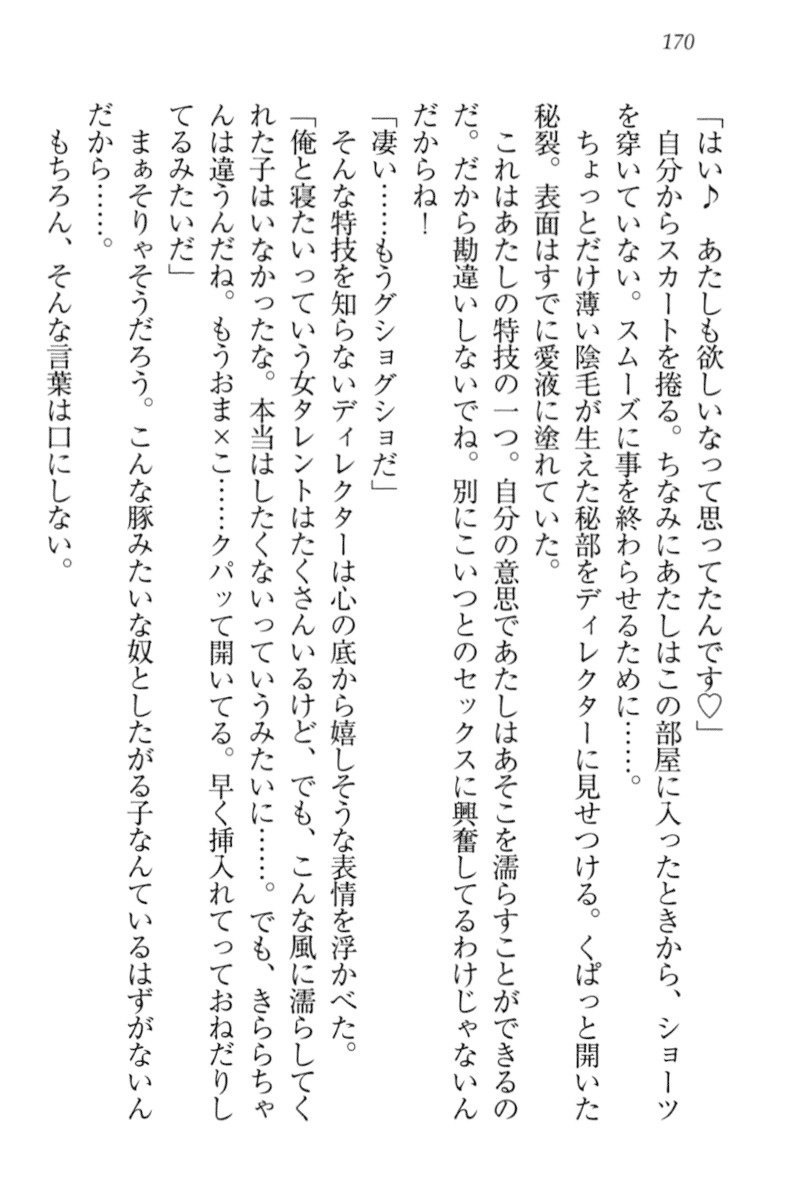 170
「はい♪　あたしも欲しいなって思ってたんです♡」
　自分からスカートを捲る。ちなみにあたしはこの部屋に入ったときから、ショーツ
を穿いていない。スムーズに事を終わらせるために……。
　ちょっとだけ薄い陰毛が生えた秘部をディレクターに見せつける。くぱっと開いた
秘裂。表面はすでに愛液に塗れていた。
　これはあたしの特技の一つ。自分の意思であたしはあそこを濡らすことができるの
だ。だから勘違いしないでね。別にこいつとのセックスに興奮してるわけじゃないん
だからね！
「凄い……もうグショグショだ」
　そんな特技を知らないディレクターは心の底から嬉しそうな表情を浮かべた。
「俺と寝たいっていう女タレントはたくさんいるけど、でも、こんな風に濡らしてく
れた子はいなかったな。本当はしたくないっていうみたいに……。でも、きららちゃ
んは違うんだね。もうおま×こ……クパッて開いてる。早く挿入れてっておねだりし
てるみたいだ」
　まぁそりゃそうだろう。こんな豚みたいな奴としたがる子なんているはずがないん
だから……。
　もちろん、そんな言葉は口にしない。